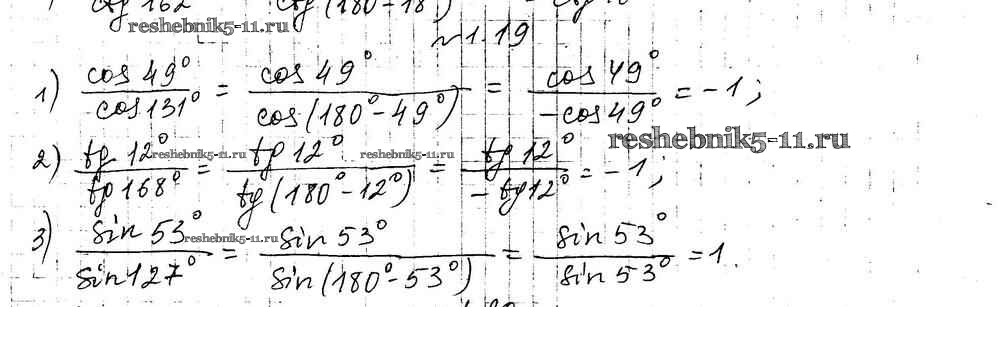 ctg 162° ctg (180°-18°)
reshebnik5-11.ru
№1.19
1) cos 49° / cos 131° = cos 49° / cos(180° - 49°) = cos 49° / -cos 49° = -1;
reshebnik5-11.ru
2) tg 12° / tg 168° = tg 12° / tg(180° - 12°) = tg 12° / -tg 12° = -1;
reshebnik5-11.ru reshebnik5-11.ru
3) sin 53° / sin 127° = sin 53° / sin(180° - 53°) = sin 53° / sin 53° = 1.
reshebnik5-11.ru